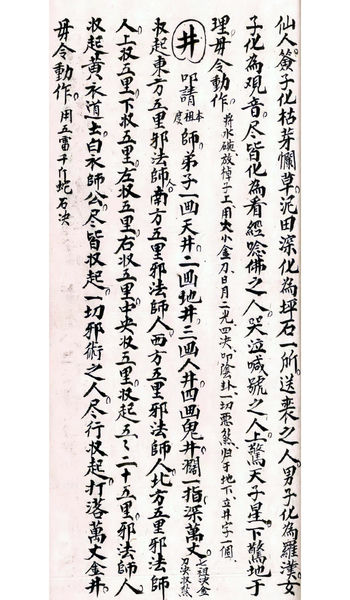 仙人簽子化枯芽爛草泥田深化為坪石一所送喪之人男子化為羅漢女
子化為观音尽皆化為看經唸佛之人哭泣喊號之人上驚天子星下驚地于
理毋令動作 井水碗放棹子上用火小金刀日月二光四决叩陰卦一切惡煞归于地下立井字一個
井 叩請 本祖度 師弟子一画天井二画地井三画人井四画鬼井爛一指深萬丈 七祖决金刀决收煞
収起東方五里邪法師人南方五里邪法師人西方五里邪法師人北方五里邪法師
人上収五里下収五里左収五里右収五里中央収五里収起五五二十五里邪法師人
収起黄衣道士白衣師公尽皆収起一切邪術之人尽行収起打落萬丈金井
毋令動作 用五雷千斤蛇石决